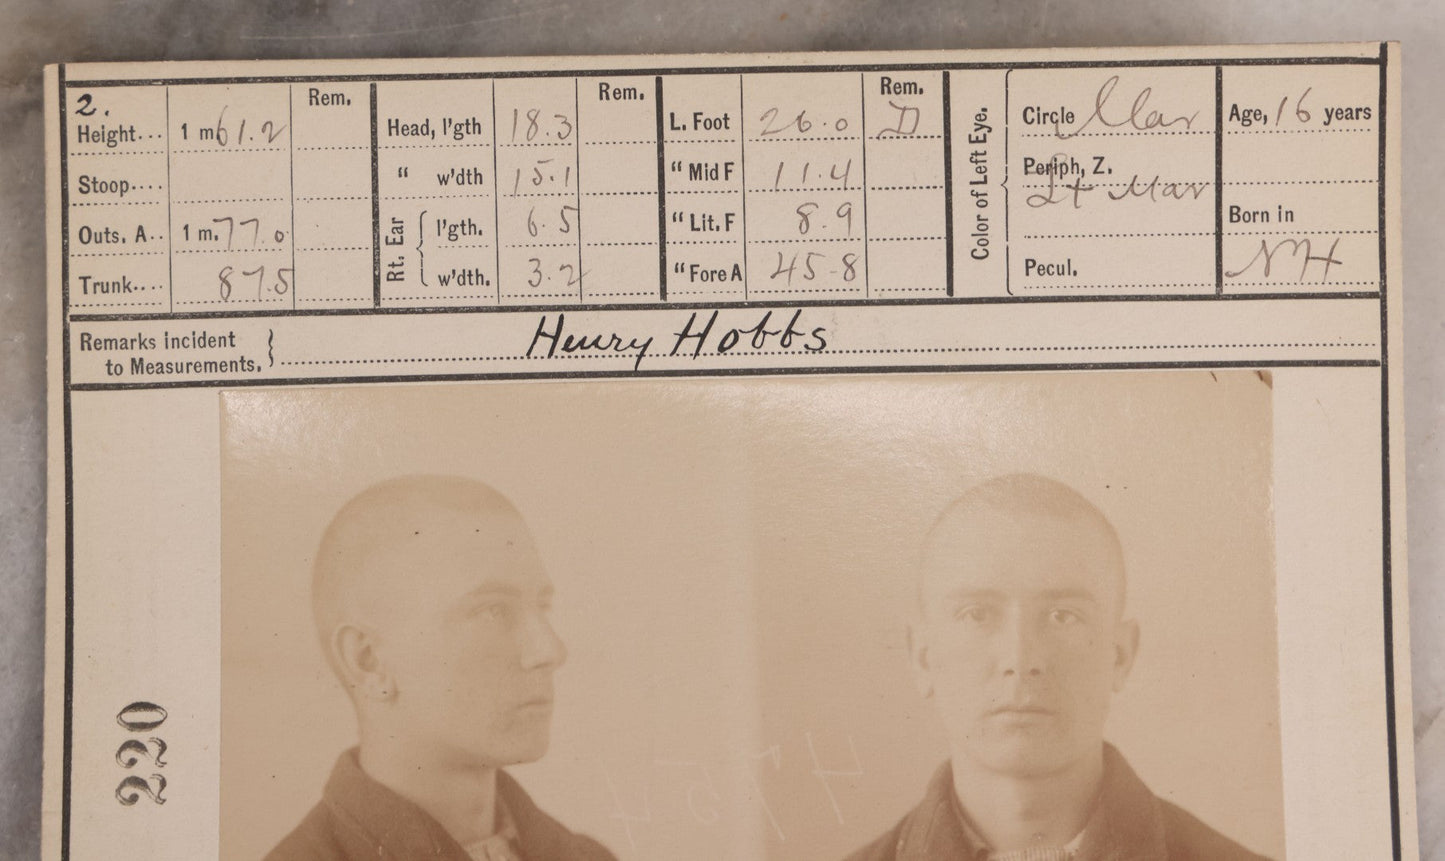 2.
Height... 1 m 61.2 Rem.
Stoop....
Outs. A.. 1 m. 77.0
Trunk.... 87.5
Head, l'gth 18.3 Rem.
" w'dth 15.1
Rt. Ear { l'gth. 6.5
w'dth. 3.2
L. Foot 26.0 Rem. D
" Mid F 11.4
" Lit. F 8.9
" Fore A 45.8
Color of Left Eye.
Circle Mar
Periph, Z.
Lt Mar
Pecul.
Age, 16 years
Born in
NH
Remarks incident
to Measurements. } Henry Hobbs
220